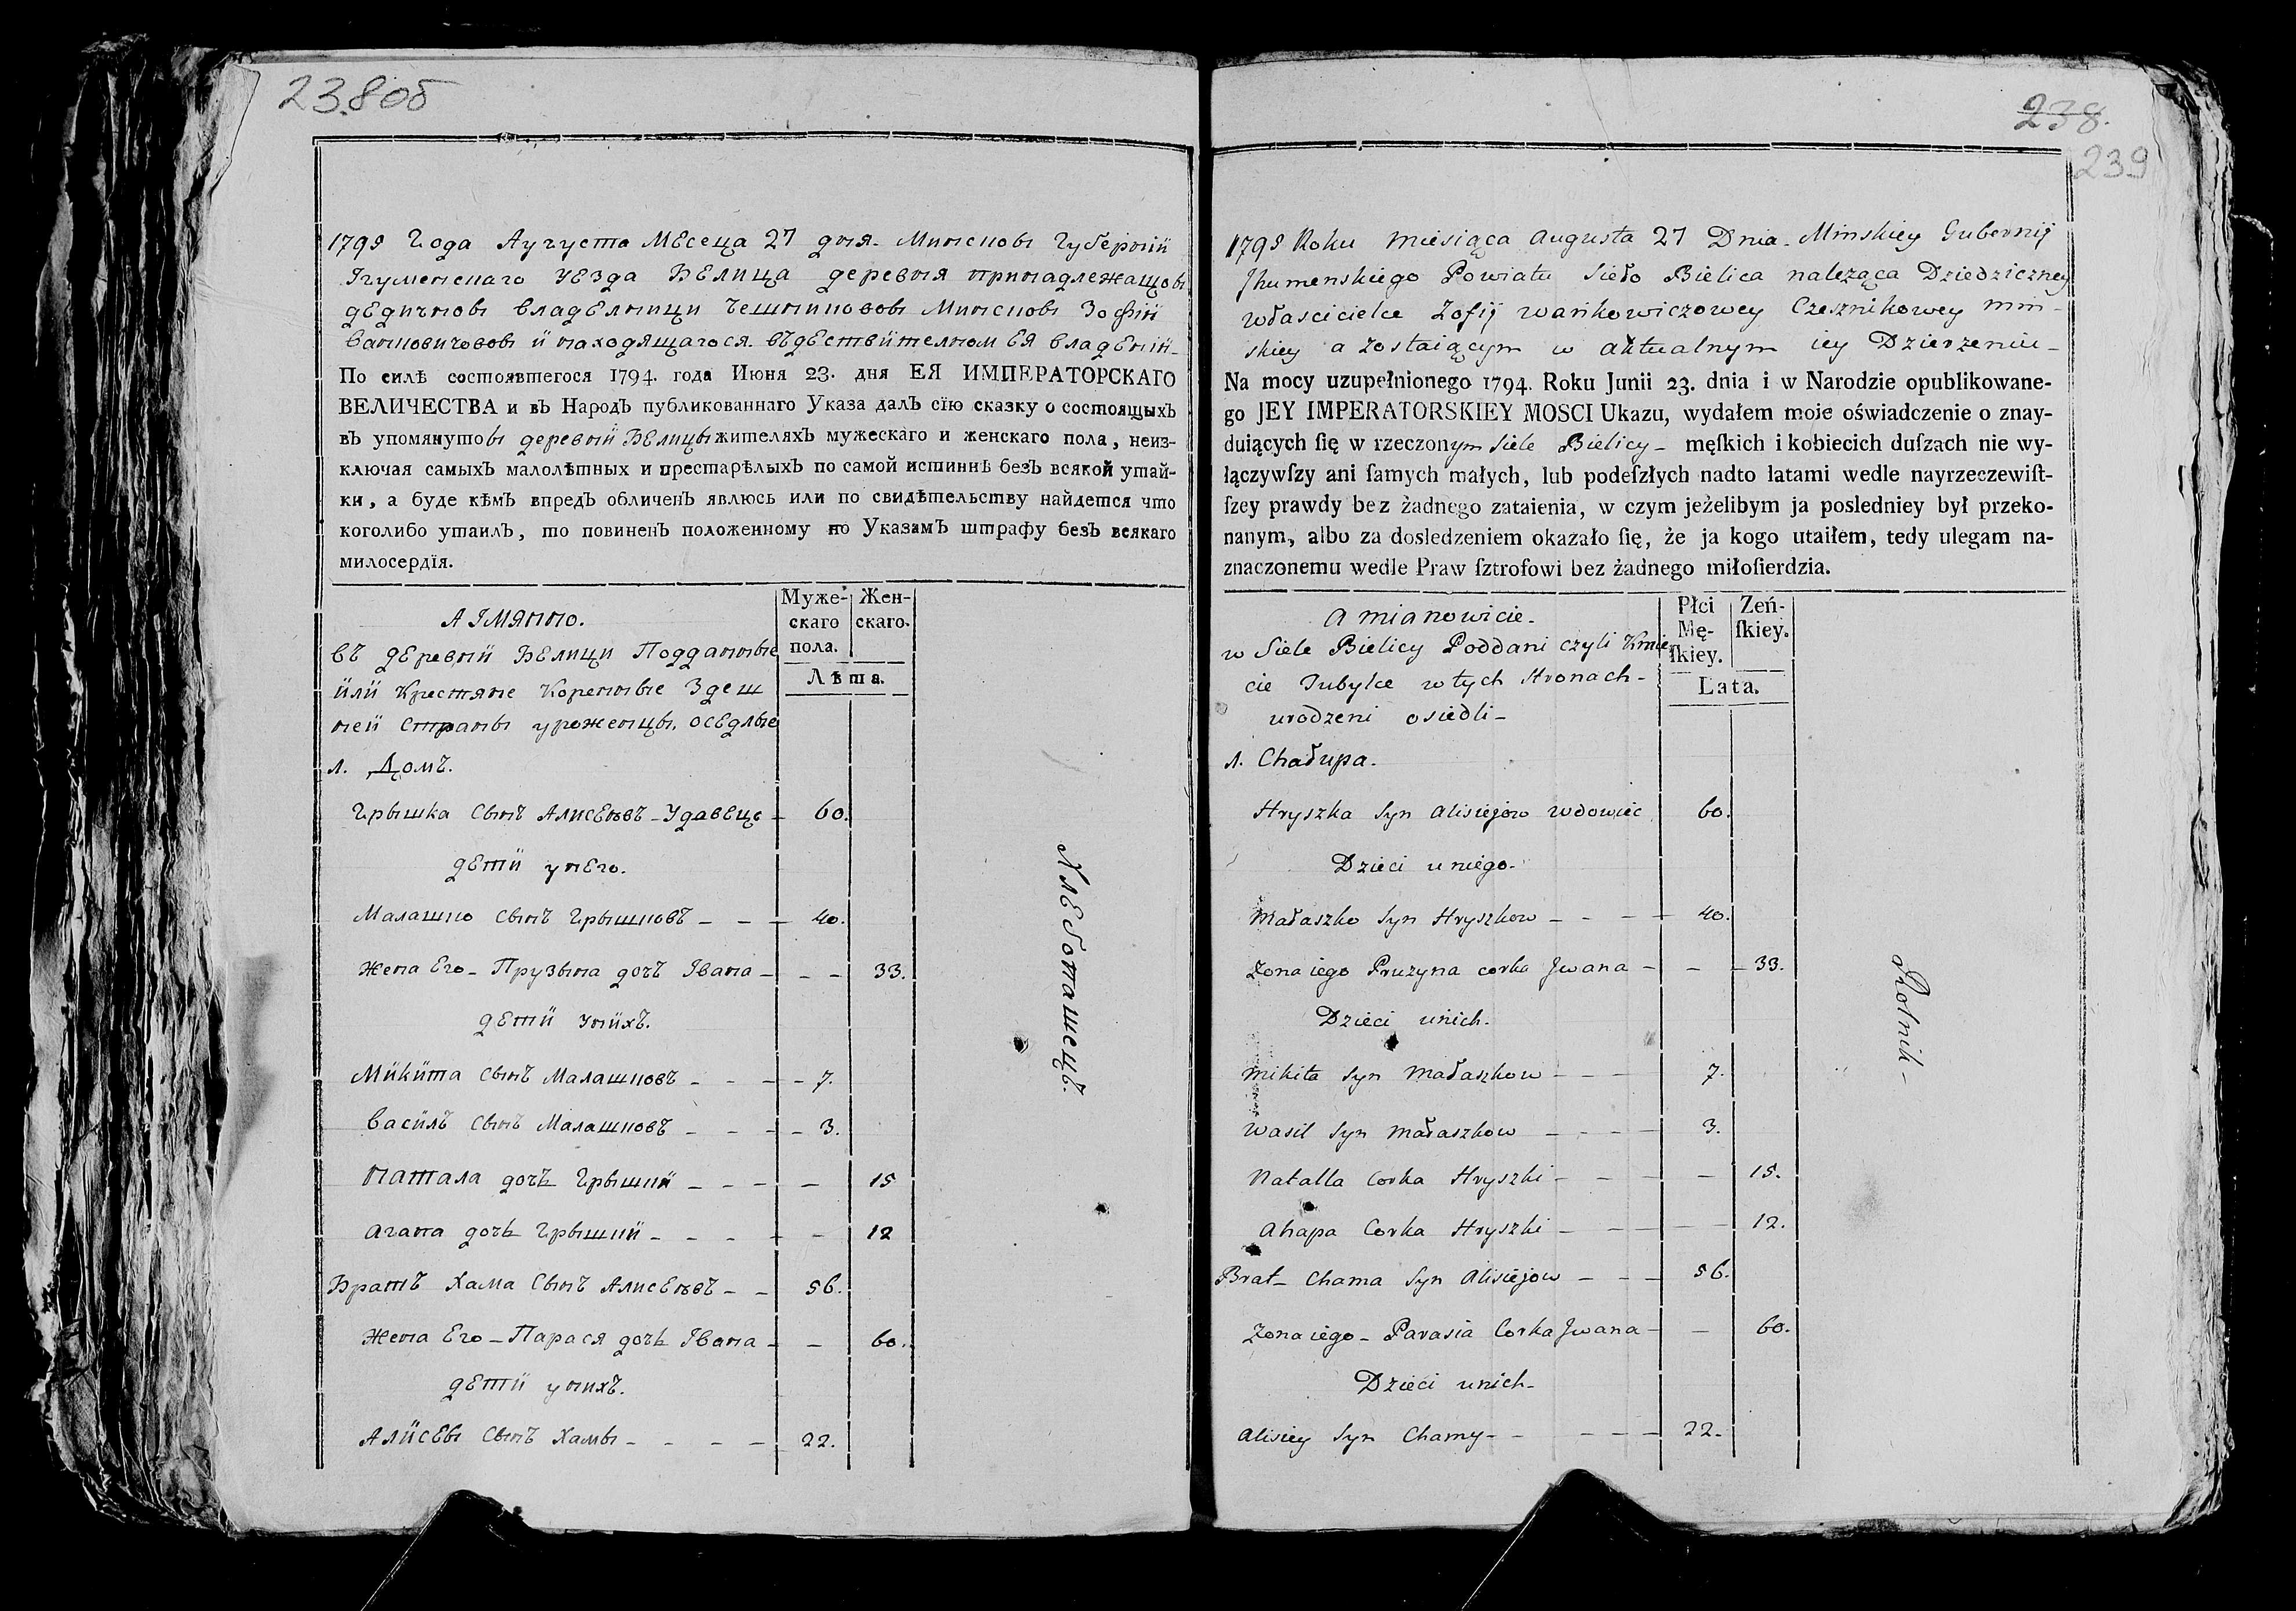 238об
1795 Года Аугуста Месеца 27 дня. Минскоы Губерній
Ігуменскаго Уезда Белица деревня принадлежащоы
дедичноы владелницы Чешниковоы Минскоы Зофіи
Ванковичовоы и находящагося въдествителном ея владеніи
По силѣ состоявшегося 1794. года Июня 23. дня ЕЯ ИМПЕРАТОРСКАГО
ВЕЛИЧЕСТВА и въ Народъ публикованнаго Указа далъ сїю сказку о состоящыхъ
въ упомянутоы деревни Белицы жителяхъ мужескаго и женскаго пола, неиз-
ключая самыхъ малолѣтных и престарѣлыхъ по самой истиннѣ безъ всякой утай-
ки, а буде кѣмъ впредъ обличенъ явлюсь или по свидѣтельству найдется что
коголибо утаилъ, то повиненъ положенному по Указамъ штрафу безъ всякаго
милосердїя.
А Імянно.
Муже-
скаго
пола.
Жен-
скаго.
Лѣта.
въ деревни БелицыПодданные
или Крестяне Коренные Здеш
ней страны уроженцы, оседлые
1. Домъ.
Грышка сынъ Алисеювъ - Удавецъ - 60.
дети у него.
Малашко сынъ Грышковъ - - - 40.
Жена Его - Прузына дочъ Івана - - - 33.
дети унихъ.
Микита сынъ Малашковъ - - - - 7.
Василъ сынъ Малашковъ - - - - 3.
Натала дочъ Грышки - - - - 15
Агапа дочь Грышки - - - - - 12
Братъ Хама сынъ Алисеювъ - - 56.
Жена Его - Парася дочь Івана - - 60.
дети унихъ.
Алисеы сынъ Хамы - - - - 22.
Хлебопашецъ.
238.
239
1795 Roku miesiąca Augusta 27 Dnia. Minskiey Gubernij
Jhumenskiego Powiatu Sieło Bielica należąca Dziedziczney
właścicielce Zofij Wańkowiczowey Czesznikowey Min-
skiey a zostaiącym w aktualnym iey Dzierzeniu -
Na mocy uzupełnionego 1794. Roku Junii 23. dnia i w Narodzie opublikowane-
go JEY IMPERATORSKIEY MOSCI Ukazu, wydałem moie oświadczenie o znay-
duiących ſię w rzeczonym Siele Bielicy - męſkich i kobiecich duſzach nie wy-
łączywſzy ani ſamych małych, lub podeſzłych nadto latami wedle nayrzeczewiſt-
ſzey prawdy bez żadnego zataienia, w czym jeżelibym ja posledniey był przeko-
nanym, albo za dosledzeniem okazało ſię, że ja kogo utaiłem, tedy ulegam na-
znaczonemu wedle Praw ſztrofowi bez żadnego miłoſierdzia.
A mianowicie.
Płci
Mę-
ſkiey.
Zeń-
ſkiey.
Lata.
w Siele Bielicy Poddani czyli Kmie
cie Tubylce w tych stronach -
urodzeni osiedli -
1. Chałupa.
Hryszka Syn Alisiejow wdowiec 60.
Dzieci u niego.
Małaszko Syn Hryszkow - - - - 40.
Zona iego Pruzyna corka Jwana - - - 33.
Dzieci unich.
Mikita Syn Małaszkow - - - 7.
Wasil Syn Małaszkow - - - - 3.
Natalla Corka Hryszki - - - - 15.
Ahapa Corka Hryszki - - - - - 12.
Brat - Chama Syn Alisiejow - - - 56.
Zona iego - Parasia Corka Jwana - - 60.
Dzieci unich -
Alisiey Syn Chamy - - - - - 22.
Rolnik -